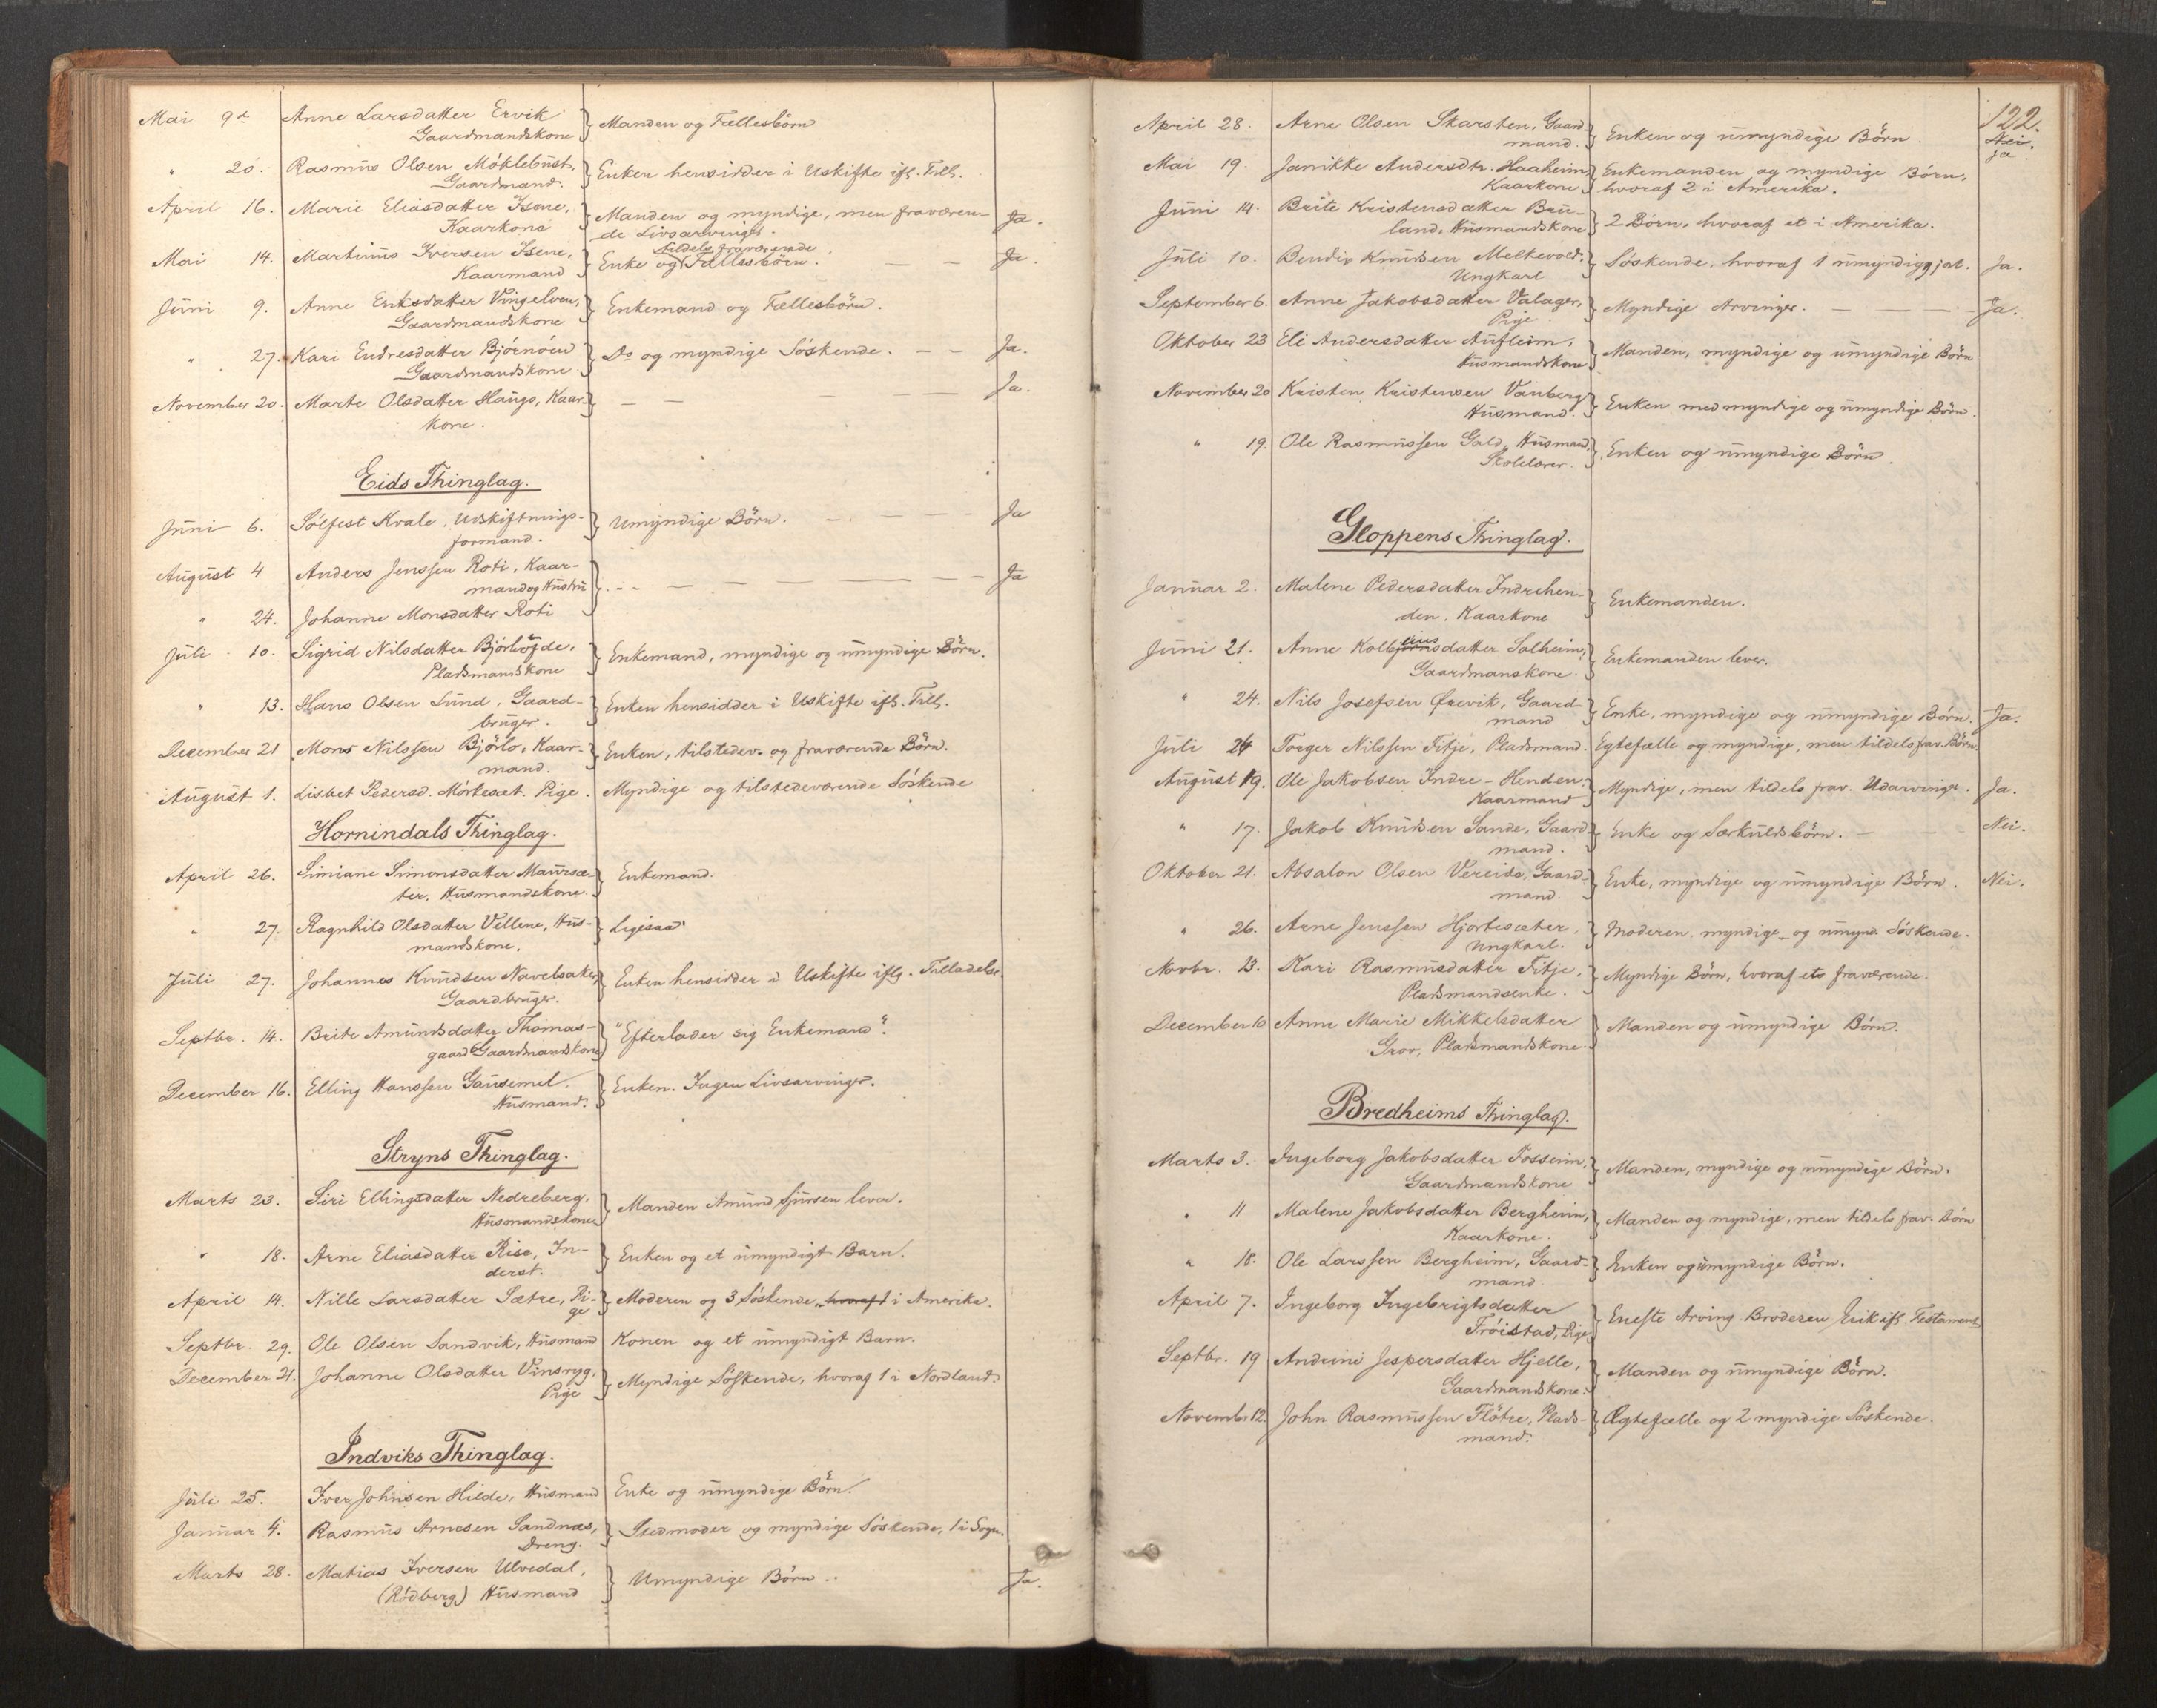 Mai 9de Anne Larsdatter Ervik Gaardmandskone } Manden og Fællesbörn
" 20. Rasmus Olsen Möklebust, Gaardmand. } Enken hensidder i Uskifte ifl. Till.
April 16. Marie Eliasdatter Isene, Kaarkone } Manden og myndige, men fraværende Livsarvinger. Ja.
Mai 14. Martinus Iversen Isene, Kaarmand } Enke og tildels fraværende Fællesbörn. — — Ja.
Juni 9. Anne Eriksdatter Vingelven, Gaardmandskone } Enkemand og Fællesbörn.
" 27. Kari Endresdatter Björnöen Gaardmandskone } Do og myndige Söskende. — — Ja.
November 20. Marte Olsdatter Haugs, Kaarkone. } — — — — Ja.
Eids Thinglag.
Juni 6. Sölfest Kvale, Udskiftningsformand. } Umyndige Börn. — — — Ja
August 4 Anders Jenssen Roti, Kaarmand og Hustru } — — — — — Ja
" 24. Johanne Monsdatter Roti
Juli 10. Sigrid Nilsdatter Björhövde, Pladsmandskone } Enkemand, myndige og umyndige Börn.
" 13. Hans Olsen Lund, Gaardbruger. } Enken hensidder i Uskifte ifl. Till.
December 21 Mons Nilssen Björlo, Kaarmand. } Enken, tilstedev. og fraværende Börn.
August 1. Lisbet Pedersd. Mörtesæt. Pige. Myndige og tilstedeværende Söskende
Hornindals Thinglag.
April 26. Simiane Simonsdatter Maursæter, Husmandskone. } Enkemand.
" 27. Ragnhild Olsdatter Vellene, Husmandskone. } Ligesaa
Juli 27. Johannes Knudsen Navelsaker, Gaardbruger. } Enken hensidder i Uskifte iflg. Tilladelse.
Septbr. 14. Brite Amundsdatter Thomasgaard Gaardmandskone } "Efterlader sig Enkemand".
December 16. Elling Hanssen Gausemel. Husmand. } Enken. Ingen Livsarvinger.
Stryns Thinglag.
Marts 23. Siri Ellingsdatter Nedreberg, Husmandskone } Manden Amund Sjursen lever.
" 18. Arne Eliasdatter Rise, Inderst. } Enken og et umyndigt Barn.
April 14. Nille Larsdatter Sætre, Pige } Moderen og 3 Söskende, hvoraf 1 i Amerika.
Septbr. 29. Ole Olsen Sandvik, Husmand Konen og et umyndigt Barn.
December 21. Johanne Olsdatter Vinsryg, Pige } Myndige Söskende, hvoraf 1 i Nordland.
Indviks Thinglag.
Juli 25. Iver Johnsen Hilde, Husmand Enke og umyndige Börn.
Januar 4. Rasmus Arnesen Sandnæs, Dreng. } Stedmoder og myndige Söskende, 1 i Sogn.
Marts 28. Matias Iversen Ulvedal, (Rödberg) Husmand } Umyndige Börn.. Ja.
122.
April 28. Arne Olsen Skarsten, Gaardmand. } Enken og umyndige Börn. Nei. ja
Mai 19. Janikke Andersdtr. Haaheim Kaarkone } Enkemanden og myndige Börn, hvoraf 2 i Amerika.
Juni 14. Brite Kristensdatter Bruland, Husmandskone } 2 Börn, hvoraf et i Amerika.
Juli 10. Bendix Knudsen Melkevold. Ungkarl } Söskende, hvoraf 1 umyndiggjort. Ja.
September 6. Anne Jakobsdatter Valager, Pige } Myndige Arvinger. — — — Ja.
Oktober 23 Eli Andersdatter Aufleim, Husmandskone } Manden, myndige og umyndige Börn
November 20 Kristen Kristensen Vanberg Husmand. } Enken med myndige og umyndige Börn.
" 19. Ole Rasmussen Gald, Husmand, Skolelærer. } Enken og umyndige Börn.
Gloppens Thinglag.
Januar 2. Malene Pedersdatter Indrehenden. Kaarkone } Enkemanden.
Juni 21. Anne Kolbeinsdatter Solheim, Gaardmandskone. } Enkemanden lever.
" 24. Nils Josefsen Örevik, Gaardmand } Enke, myndige og umyndige Börn. Ja.
Juli 24 Torger Nilssen Fitje, Pladsmand. Egtefælle og myndige, men tildels frav. Börn.
August 19. Ole Jakobsen Indre-Henden, Kaarmand } Myndige, men tildels frav. Udarvinger. Ja.
" 17. Jakob Knudsen Sande, Gaardmand. } Enke og Særkuldsbörn. — — Nei.
Oktober 21. Absalon Olsen Vereide, Gaardmand. } Enke, myndige og umyndige Börn. Nei.
" 26. Arne Jenssen Hjortesæter, Ungkarl. } Moderen, myndige og umynd. Söskende.
Novbr. 23. Kari Rasmusdatter Fitje, Pladsmandsenke. } Myndige Börn, hvoraf ets fraværende.
December 10 Anne Marie Mikkelsdatter Grov, Pladsmandskone. } Manden og umyndige Börn.
Bredheims Thinglag.
Marts 3. Ingeborg Jakobsdatter Fosseim, Gaardmandskone } Manden, myndige og umyndige Börn.
" 11 Malene Jakobsdatter Bergheim, Kaarkone. } Manden og myndige, men tildels frav. Börn
" 18. Ole Larssen Bergheim, Gaardmand } Enken og umyndige Börn.
April 7. Ingeborg Ingebrigtsdatter Fröistad, Pige } Eneste Arving Broderen Erik ifl. Testament
Septbr. 19 Andrine Jespersdatter Hjelle, Gaardmandskone. } Manden og umyndige Börn.
November 12. John Rasmussen Flötre, Pladsmand. } Ægtefælle og 2 myndige Söskende.